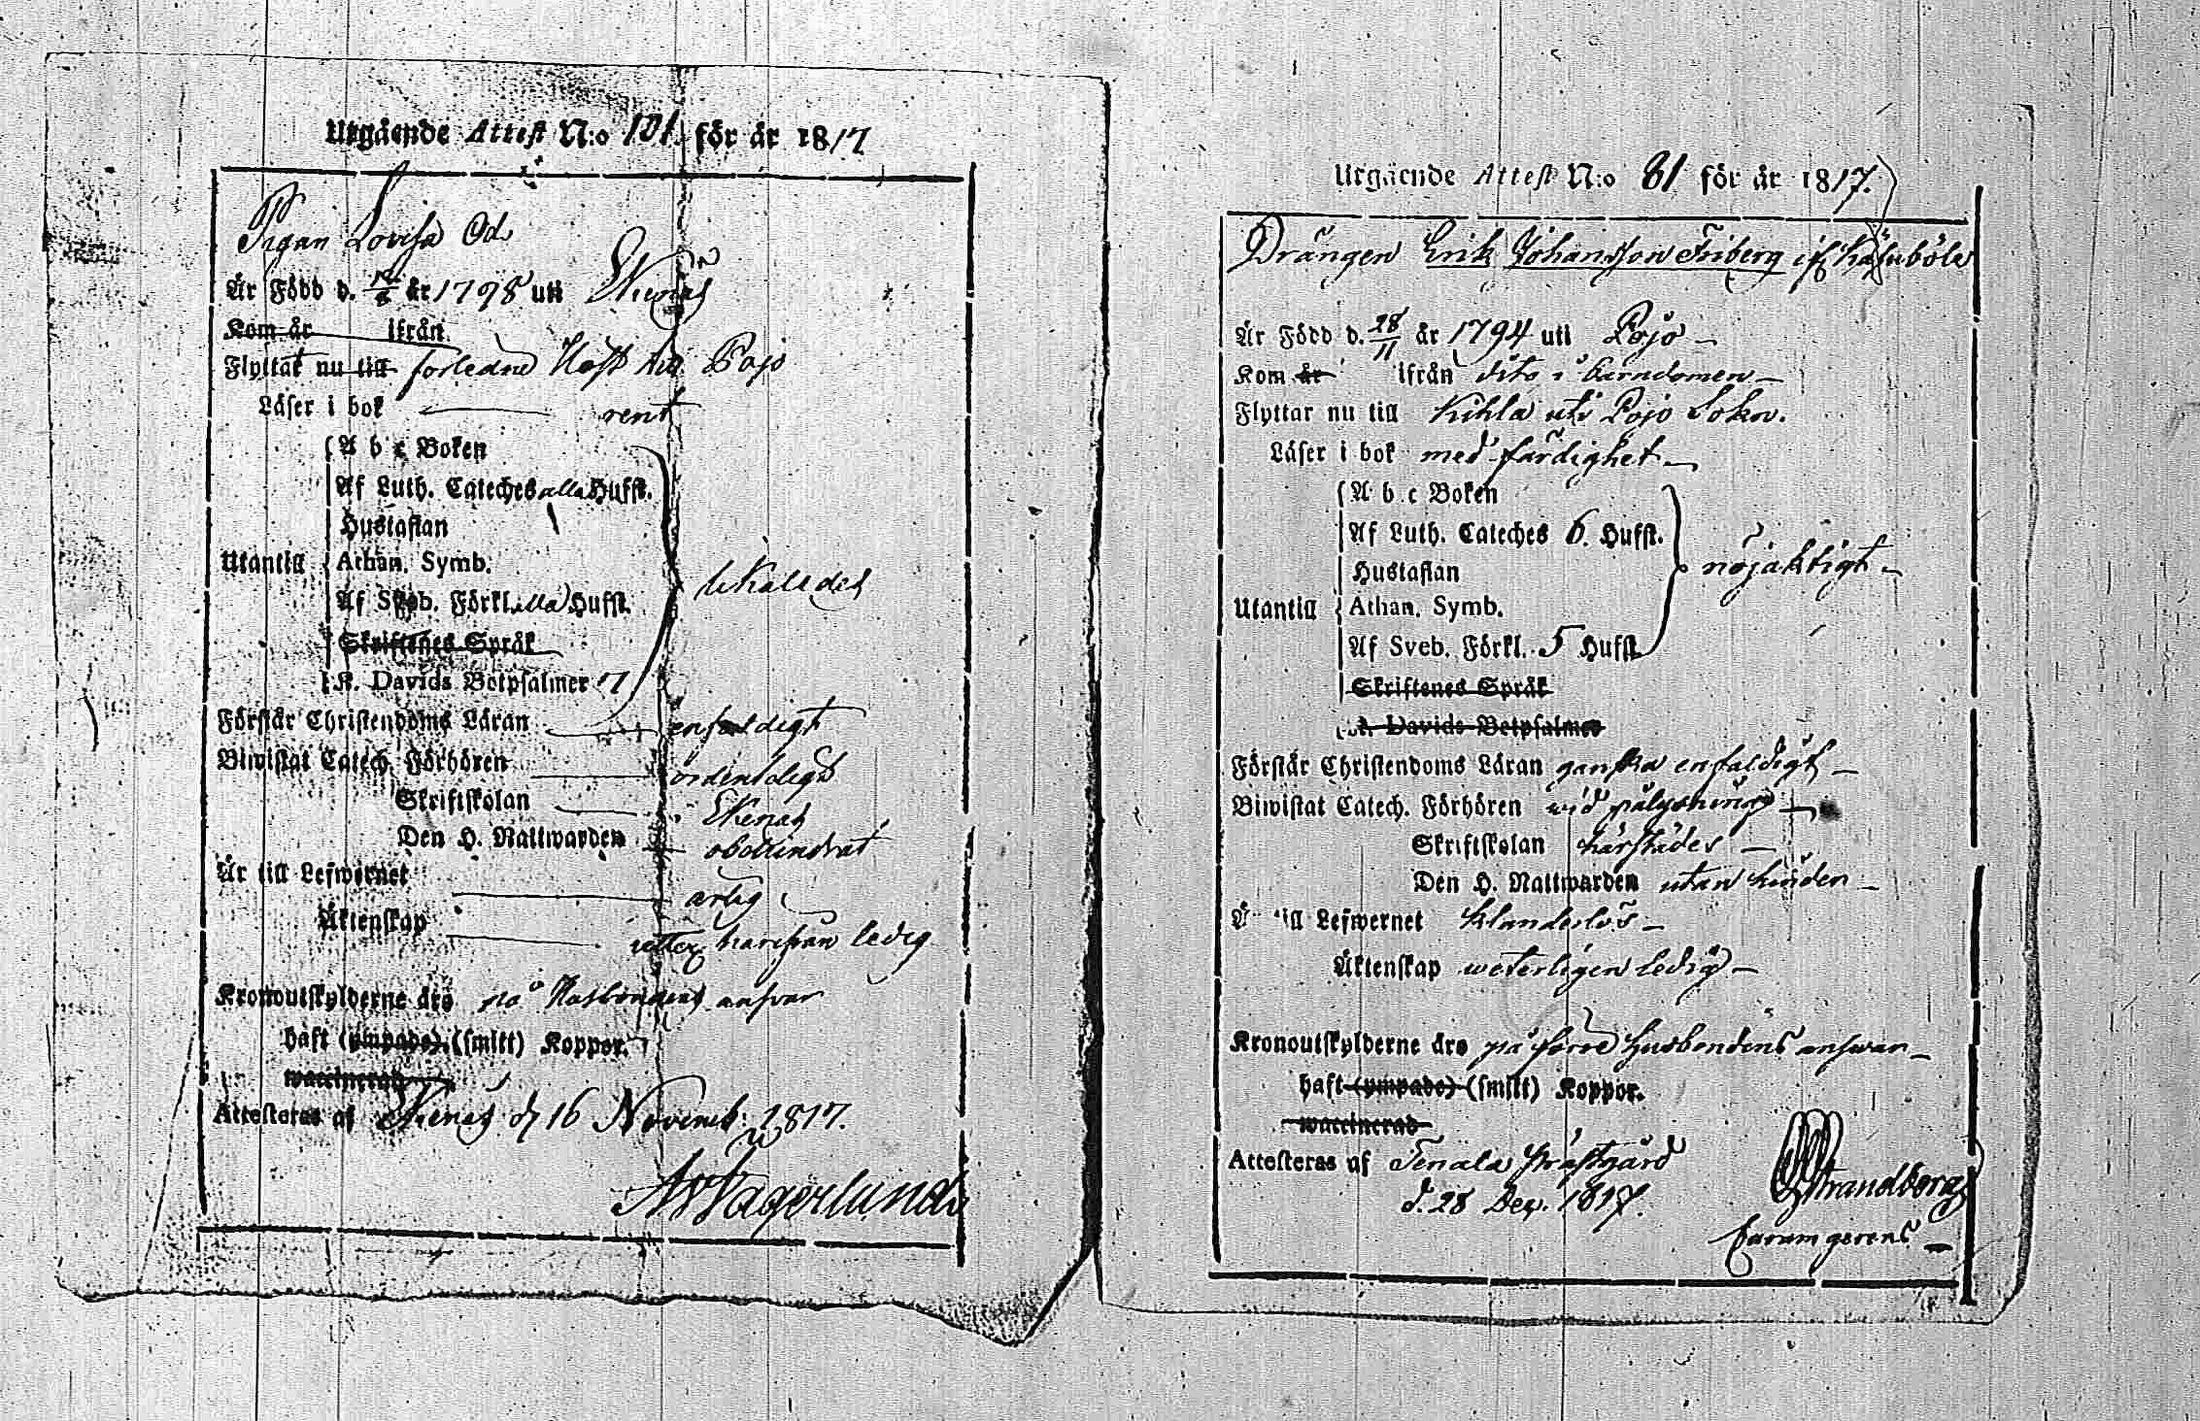 Utgående Attest N:o 101. för år 1817
Pigan Lovisa Od.
Är Född d. 12/8 år 1798 uti Ekenäs
Kom år ifrån
Flyttat nu till förledne Höst till Pojo
Läser i bok rent
A b c Boken
Af Luth. Cateches alla Hufst.
Hustaflan
Utantill Athan. Symb. likaledes
Af Sveb. Förkl. alla Hufst.
Skriftenes Språk
K. Davids Botpsalmer 7
Förstår Christendoms Läran enfaldigt
Biwistat Catech. Förhören ordentligt
Skriftskolan i Ekenäs
Den H. Nattwarden obehindrat
Är till Lefwernet ärlig
Äktenskap härifrån ledig
Kronoutskylderne äro på Husbondens ansvar
haft (ympade) (smitt) Koppor.
waccinerad
Attesteras af Ekenäs d 16 Novemb: 1817.
Utgående Attest N:o 81 för år 1817.
Drängen Erik Johansson Friberg if.
Är Född d. 28/11 år 1794 uti Pojo
Kom år ifrån dito i barndomen
Flyttar nu till Kihla uti Pojo Sokn.
Läser i bok med färdighet
A b c Boken
Af Luth. Cateches 6. Hufst.
Hustaflan nöjaktigt
Utantill Athan. Symb.
Af Sveb. Förkl. 5 Hufst
Skriftenes Språk
K. Davids Botpsalmer
Förstår Christendoms Läran ganska enfaldigt
Biwistat Catech. Förhören wid pålysning
Skriftskolan härstädes
Den H. Nattwarden utan hinder
Är till Lefwernet klanderlös
Äktenskap weterligen ledig
Kronoutskylderne äro på förre husbondens answar
haft (ympade) (smitt) Koppor.
waccinerad
Attesteras af Tenala prästgård
d. 28 Dec. 1817. Strandberg